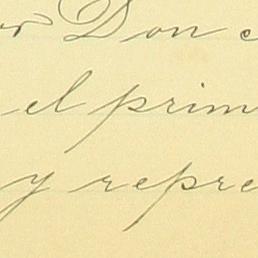 or Don
el prim
y repre